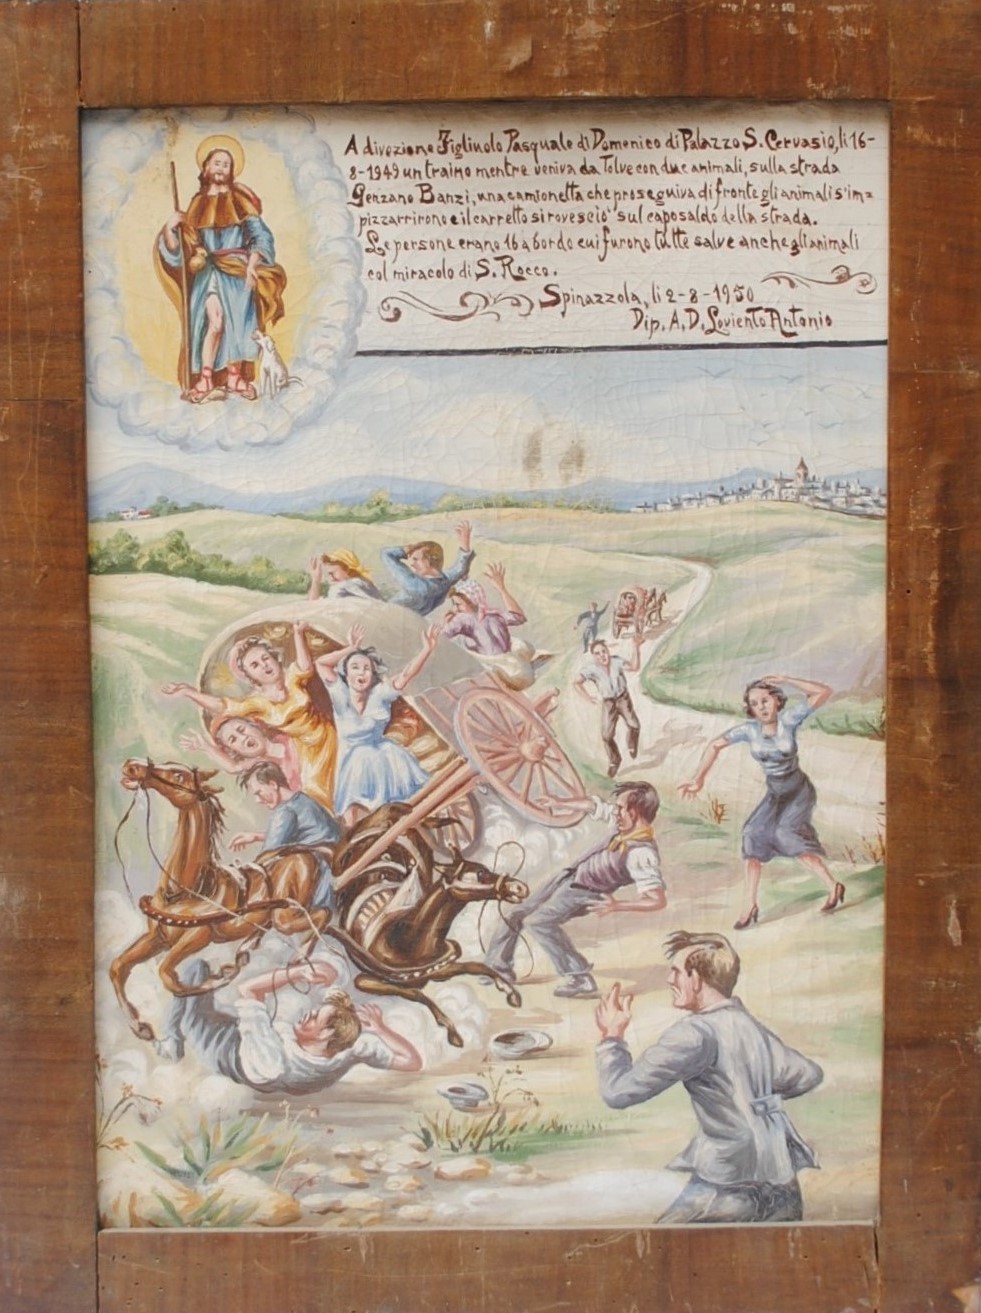 A divozione Figliuolo Pasquale di Domenico di Palazzo S. Cervasio, li 16-
8-1949 un traino mentre veniva da Tolve con due animali, sulla strada
Genzano Banzi, una camionetta che proseguiva di fronte gli animali s'im=
pizzarrirono e il carretto si rovesciò sul caposaldo della strada.
Le persone erano 16 a bordo cui furono tutte salve anche gli animali
col miracolo di S. Rocco.
Spinazzola, li 2-8-1950
Dip. A. D. Loviento Antonio